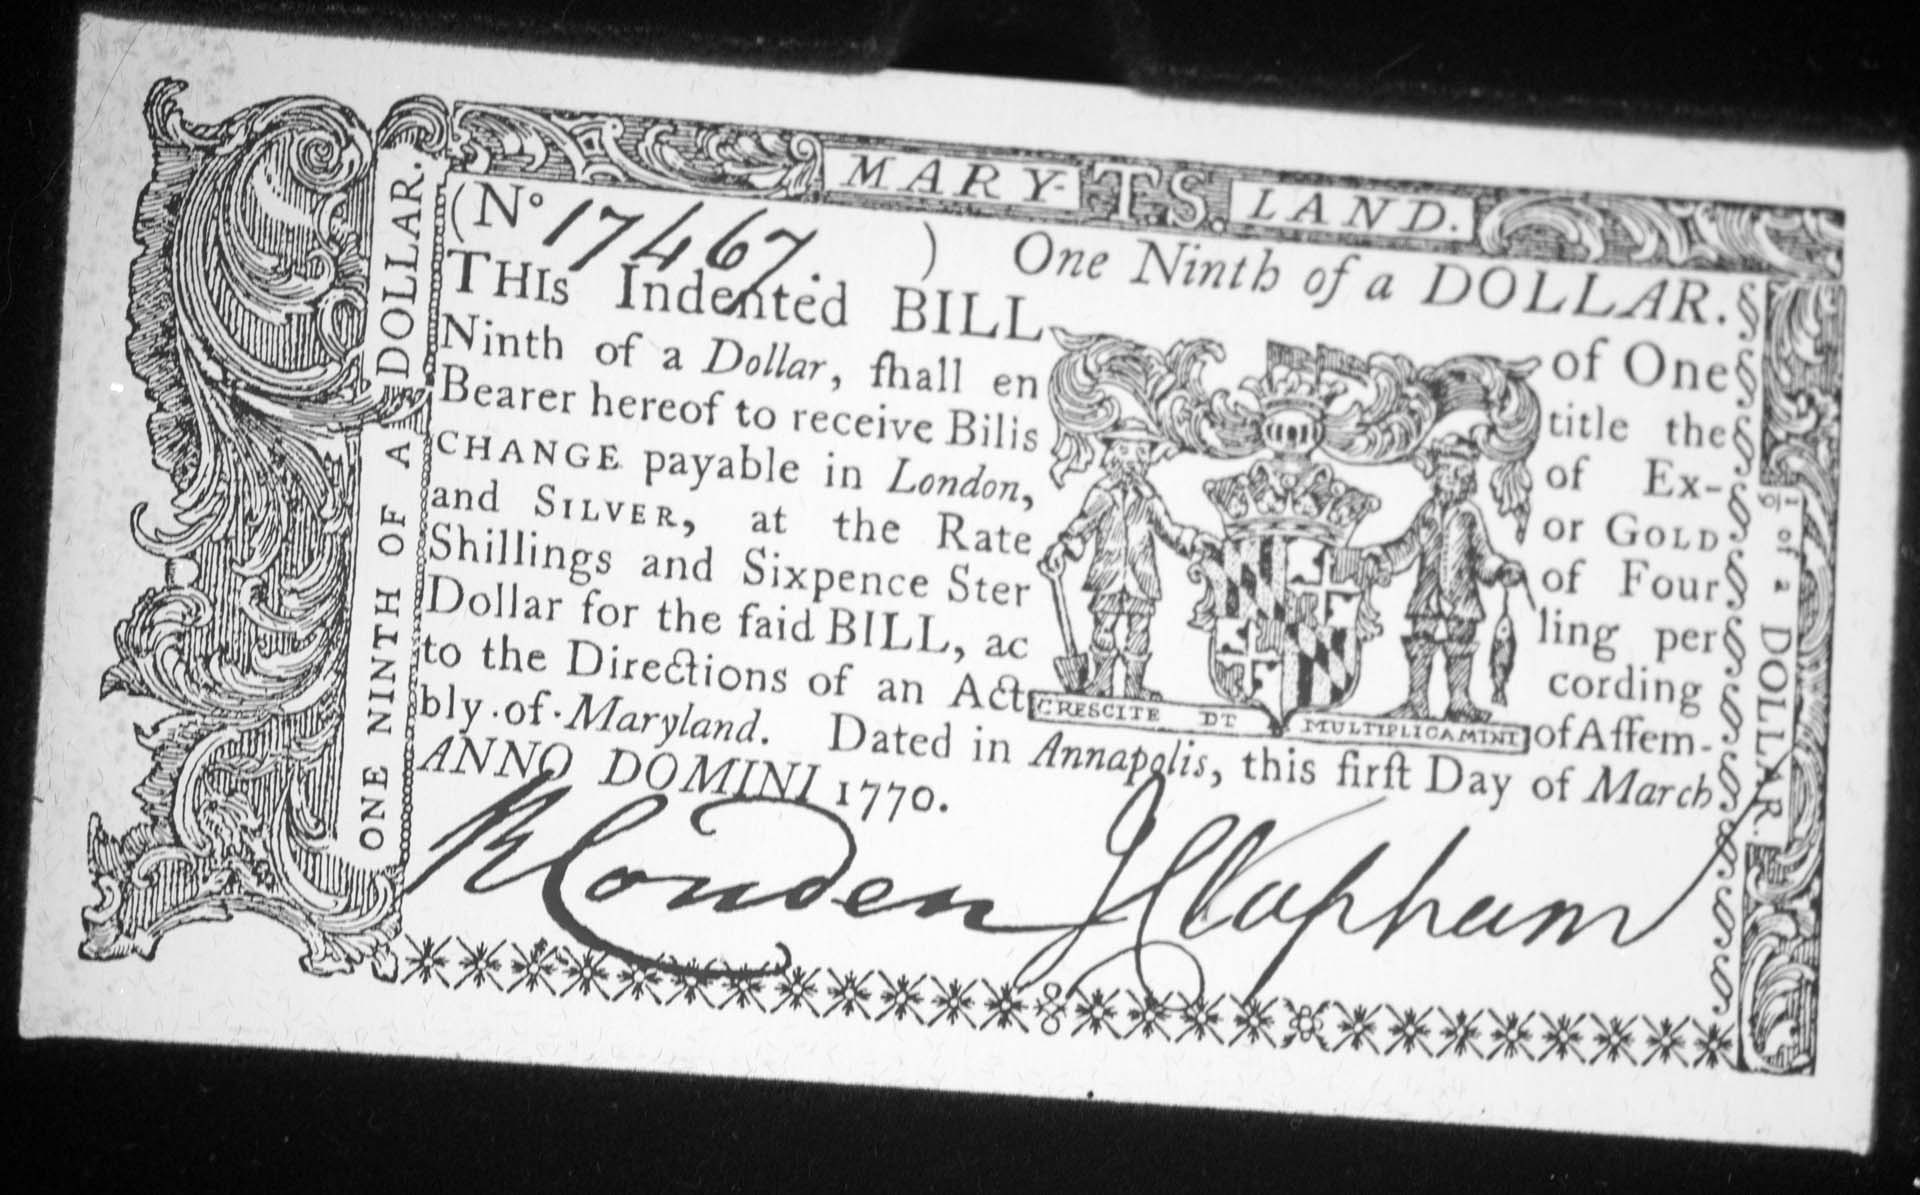 MARY- T.S. LAND.
(No 17467.) One Ninth of a DOLLAR.
THIs Indented BILL of One
Ninth of a Dollar, ſhall en title the
Bearer hereof to receive Bilis of Ex-
CHANGE payable in London, or GOLD
and SILVER, at the Rate of Four
Shillings and Sixpence Ster ling per
Dollar for the ſaid BILL, ac cording
to the Directions of an Act of Aſſem-
bly of Maryland. Dated in Annapolis, this firſt Day of March
ANNO DOMINI 1770.
CRESCITE DT MULTIPLICAMINI
R Couden J Clapham
ONE NINTH OF A DOLLAR.
1/9 of a DOLLAR.